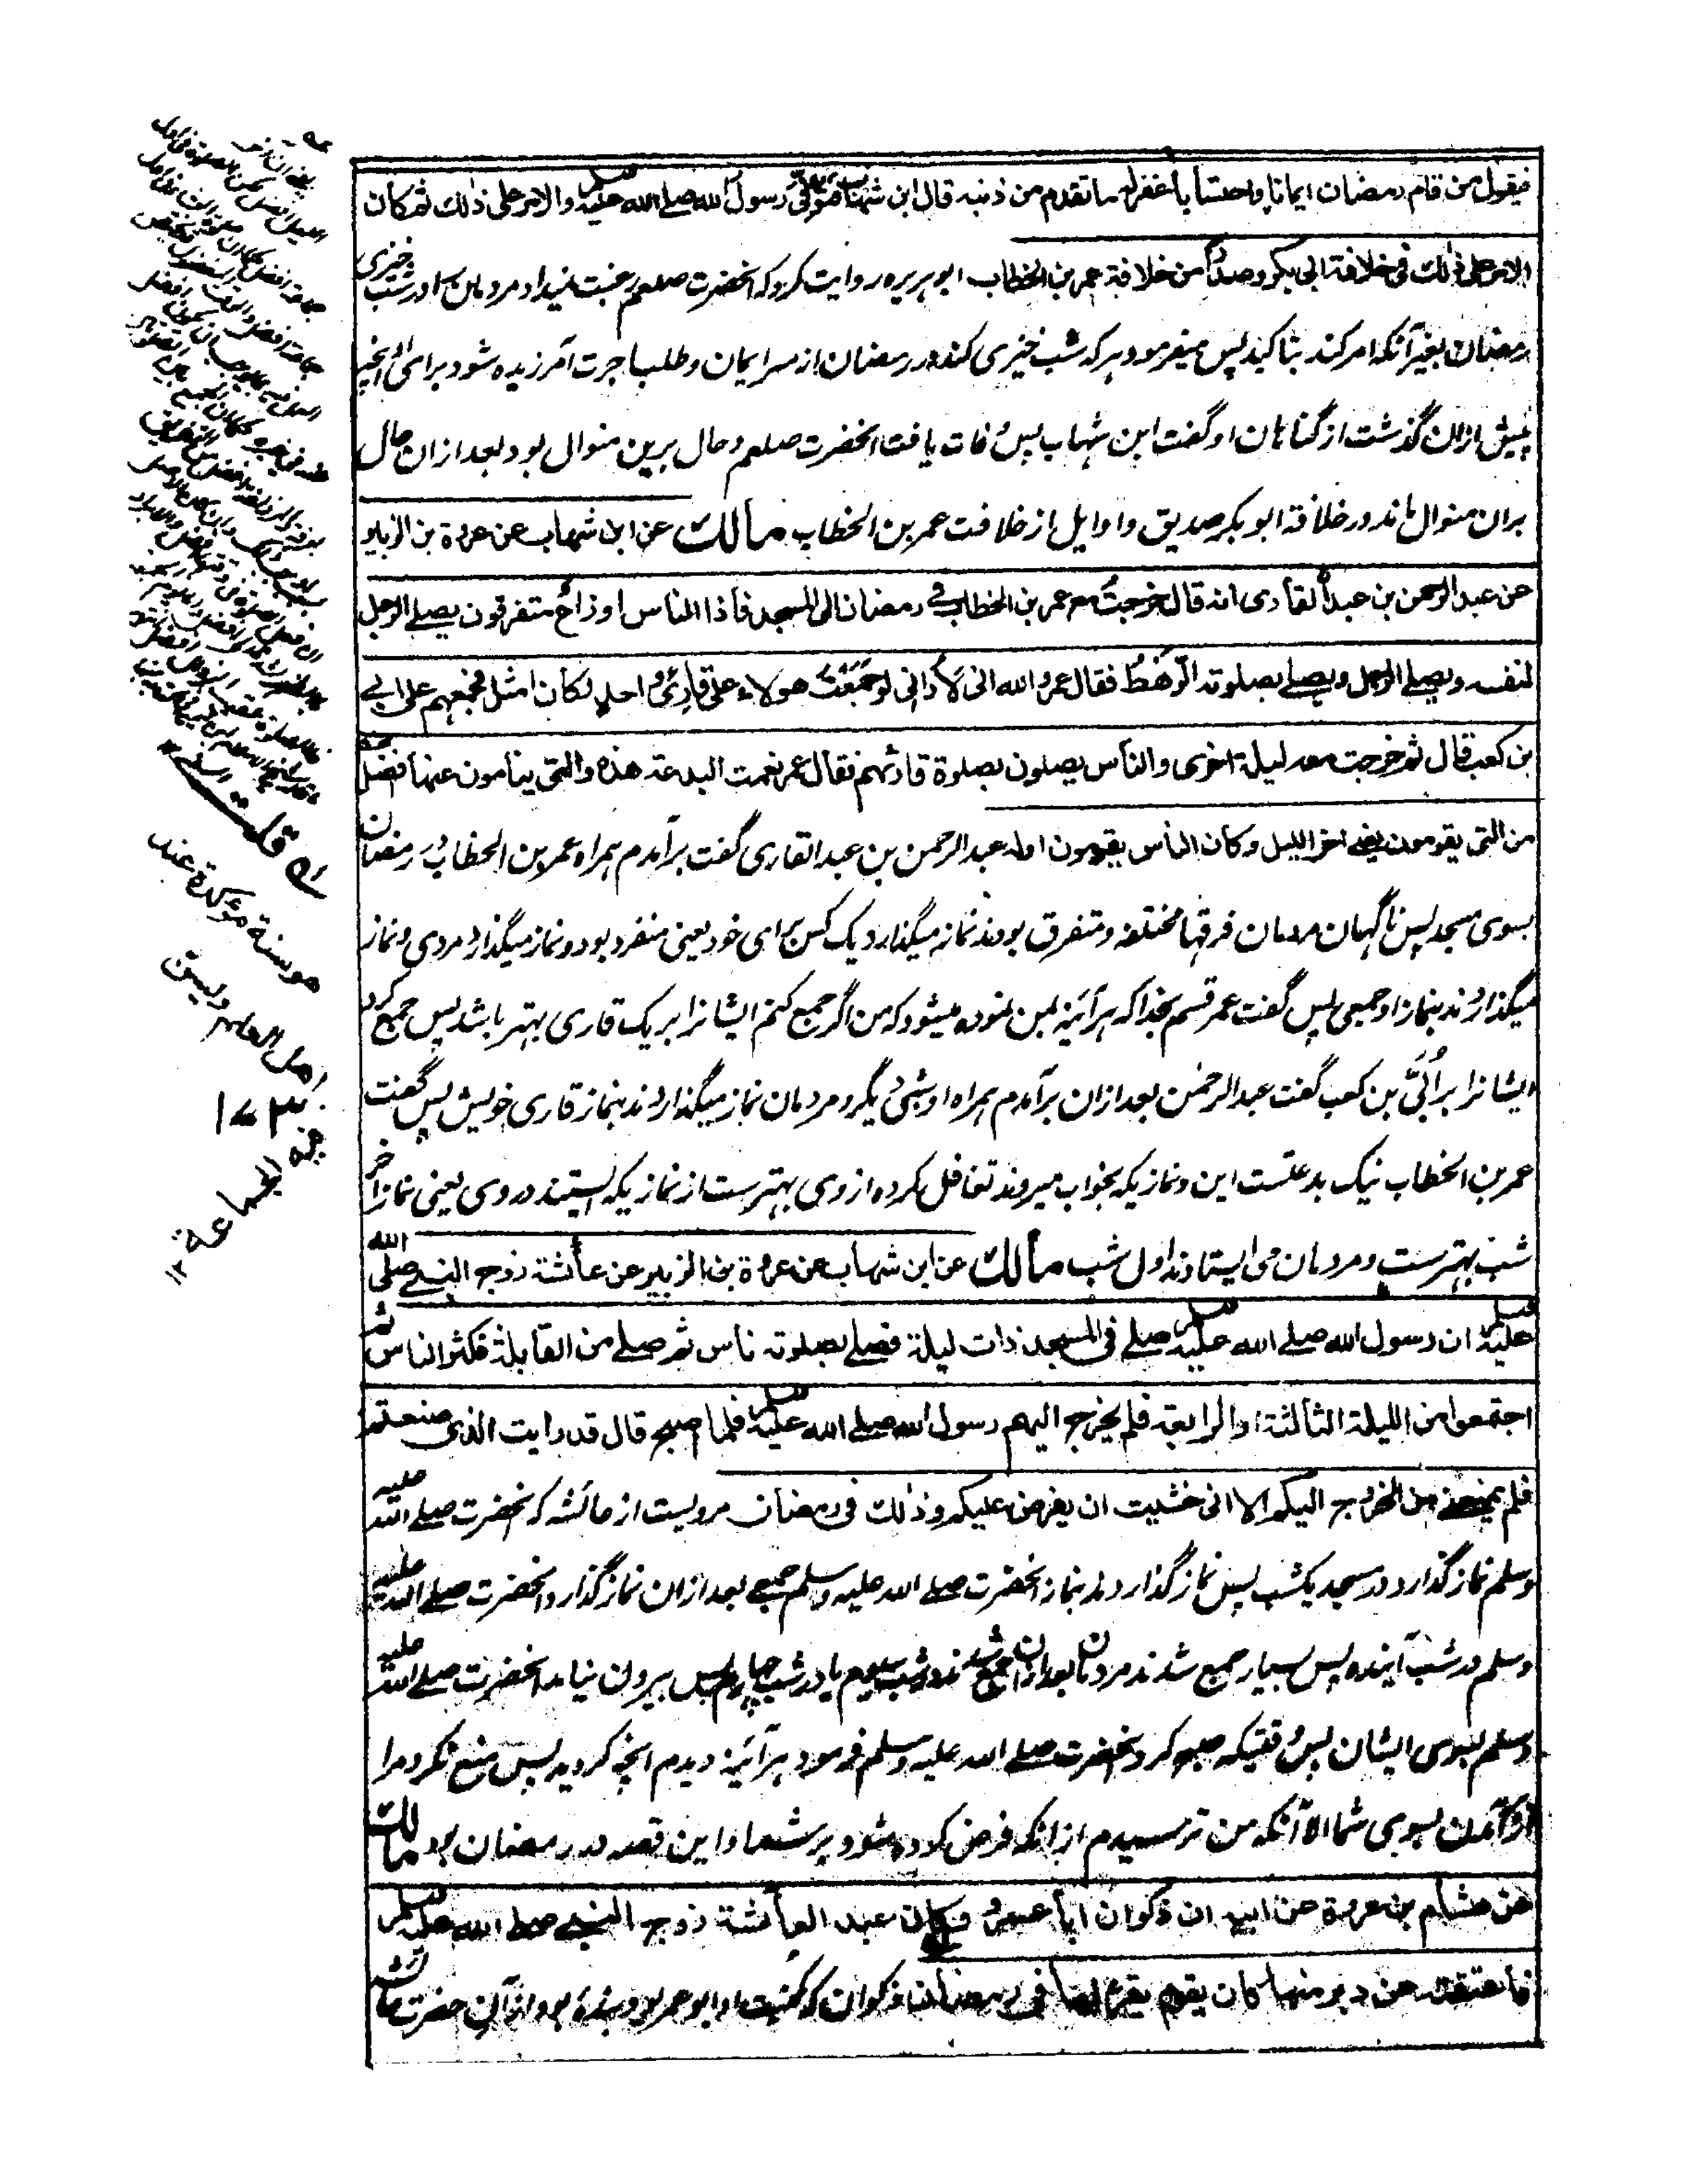 فيقول من قام رمضان ايمانا واحتسابا غفر له ما تقدم من ذنبه قال ابن شهاب فتوفي رسول الله صلے الله عليه وسلم والامر على ذلك ثم كان
الامر على ذلك فى خلافة ابى بكر وصدرا من خلافة عمر بن الخطاب ابو هريره روايت كرد كه آنحضرت صلعم رغبت ميداد مردمان را در شب خيزى
رمضان بغير آنكه امر كند بتاكيد پس ميفرمود هر كه شب خيزى كند در رمضان از سر ايمان و طلب اجرت آمرزيده شود براى او انچه
پيش ازان گذشت از گناهان او گفت ابن شهاب پس وفات يافت آنحضرت صلعم و حال برين منوال بود بعد ازان حال
بران منوال ماند در خلافة ابو بكر صديق و اوايل از خلافت عمر بن الخطاب مالك عن ابن شهاب عن عروة بن الزبير
عن عبد الرحمن بن عبد القارى انه قال خرجت مع عمر بن الخطاب فے رمضان الى المسجد فاذا الناس اوزاع متفرقون يصلے الرجل
لنفسه ويصلے الرجل ويصلے بصلوته الرَّهْطُ فقال عمر والله انى لَأُرانى لو جَمَعْتُ هولاء على قارئٍ واحدٍ لكان امثل فجمعهم على ابے
بن كعب قال ثم خرجت معه ليلة اخرى والناس يصلون بصلوة قارئهم فقال عمر نعمت البدعة هذه والتى ينامون عنها افضل
من التى يقومون يعنے اخر الليل وكان الناس يقومون اوله عبد الرحمن بن عبد القارى گفت برآمدم همراه عمر بن الخطاب در رمضان
بسوى مسجد پس ناگهان مردمان فرقها مختلفه و متفرق بودند نماز ميگذارد يك كس براى خود يعنى منفرد بود و نماز ميگذارد مردى و نماز
ميگذاردند بنماز او جمعى پس گفت عمر قسم بخدا كه هر آئينه بمن نموده ميشود كه من اگر جمع كنم ايشانرا بر يك قارى بهتر باشد پس جمع كرد
ايشانرا بر اُبَيّ بن كعب گفت عبد الرحمن بعد ازان برآمدم همراه او شبى ديگر و مردمان نماز ميگذاردند بنماز قارى خويش پس گفت
عمر بن الخطاب نيك بدعتست اين و نمازيكه بخواب ميروند تغافل كرده ازوى بهترست از نمازيكه ايستيند در وى يعنى نماز آخر
شب بهترست و مردمان مى ايستادند اول شب مالك عن ابن شهاب عن عروة بن الزبير عن عائشة زوج النبے صلى الله
عليه وسلم ان رسول الله صلے الله عليه وسلم صلے فى المسجد ذات ليلة فصلے بصلوته ناس ثم صلے من القابلة فكثر الناس ثم
اجتمعوا من الليلة الثالثة او الرابعة فلم يخرج اليهم رسول الله صلے الله عليه وسلم فلما اصبح قال قد رايت الذى صنعتم
فلم يمنعنے من الخروج اليكم الا انى خشيت ان يفرض عليكم وذلك فى رمضان مرويست از عائشه كه آنحضرت صلے الله عليه
وسلم نماز گذارد در مسجد يكشب پس نماز گذاردند بنماز آنحضرت صلے الله عليه وسلم جمعے بعد ازان نماز گذارد آنحضرت صلے الله عليه
وسلم در شب آينده پس بسيار جمع شدند مردمان بعد ازان جمع شدند در شب سيوم يا در شب چهارم پس بيرون نيامد آنحضرت صلے الله عليه
وسلم بسوى ايشان پس وقتيكه صبح كرد آنحضرت صلے الله عليه وسلم فرمود هر آئينه ديدم انچه كرديد پس منع نكرد مرا
از برآمدن بسوى شما الا آنكه من ترسيدم ازانكه فرض كرده شود بر شما و اين قصه در رمضان بود مالك
عن هشام بن عروة عن ابيه ان ذكوان ابا عمرو وكان عبد العائشة زوج النبے صلے الله عليه وسلم
فاعتقته عن دبر منها كان يقوم يقرء لها فى رمضان ذكوان كه كنيت او ابو عمر بود و بنده بود از آن حضرت عائشه
ك قلت
هو سنة مؤكدة عند
اهل العلم وليس
فيه الجماعة
١٢